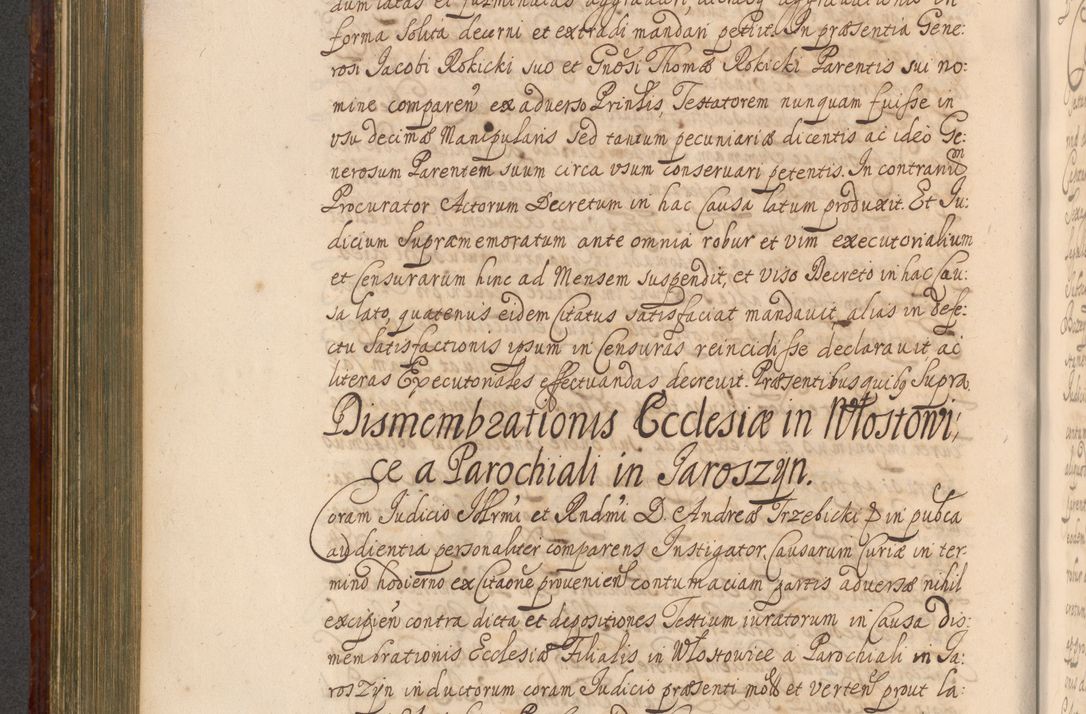 dum latas et fulminatas aggravari, literasq aggravationis in
forma solita decerni et extradi mandari petiit. In præsentia Gene:
rosi Jacobi Rokicki suo et Gnosi Thomæ Rokicki Parentis sui no:
mine comparen ex adverso Prinlis, Testatorem nunquam fuisse in
usu decimæ Manipularis sed tantum pecuniariæ dicentis ac ideo Ge:
nerosum Parentem suum circa usum conservari petentis. In contrarium
Procurator Actorum Decretum in hac Causa latum produxit. Et Ju:
dicium supramemoratum ante omnia robur et vim executorialium
et Censurarum hinc ad Mensem suspendit, et viso Decreto in hac Cau:
sa lato, quatenus eidem Citatus satisfaciat mandavit, alias in defe:
ctu satisfactionis ipsum in Censuras reincidisse declaravit ac
literas Executoriales effectuandas decrevit. Præsentibus quibus supra.
Dismembrationis Ecclesiæ in Włostowi,
ce a Parochiali in Jaroszyn.
Coram Judicio Illrmi et Rndmi D. Andreæ Trzebicki & in pubca
audientia personaliter comparens Instigator Causarum Curiæ in ter
mino hodierno ex Citaone provenien contumaciam partis adversæ nihil
excipien contra dicta et depositiones Testium iuratorum in Causa dis:
membrationis Ecclesiæ Filialis in Włostowice a Parochiali in Ja:
roszyn inductorum coram Judicio præsenti et verten prout la: